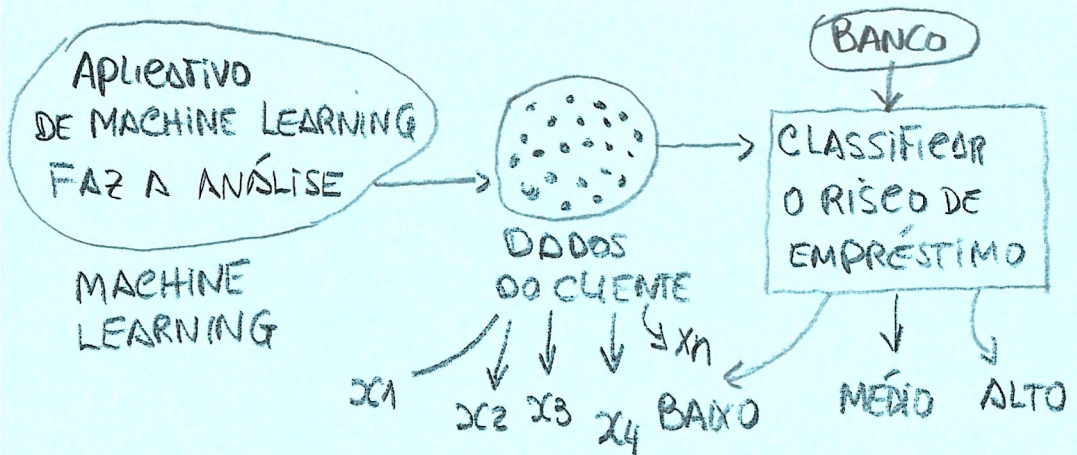 APLICATIVO
DE MACHINE LEARNING
FAZ A ANÁLISE
MACHINE
LEARNING
DADOS
DO CLIENTE
x1
x2
x3
x4
xn
BANCO
CLASSIFICAR
O RISCO DE
EMPRÉSTIMO
BAIXO
MÉDIO
ALTO